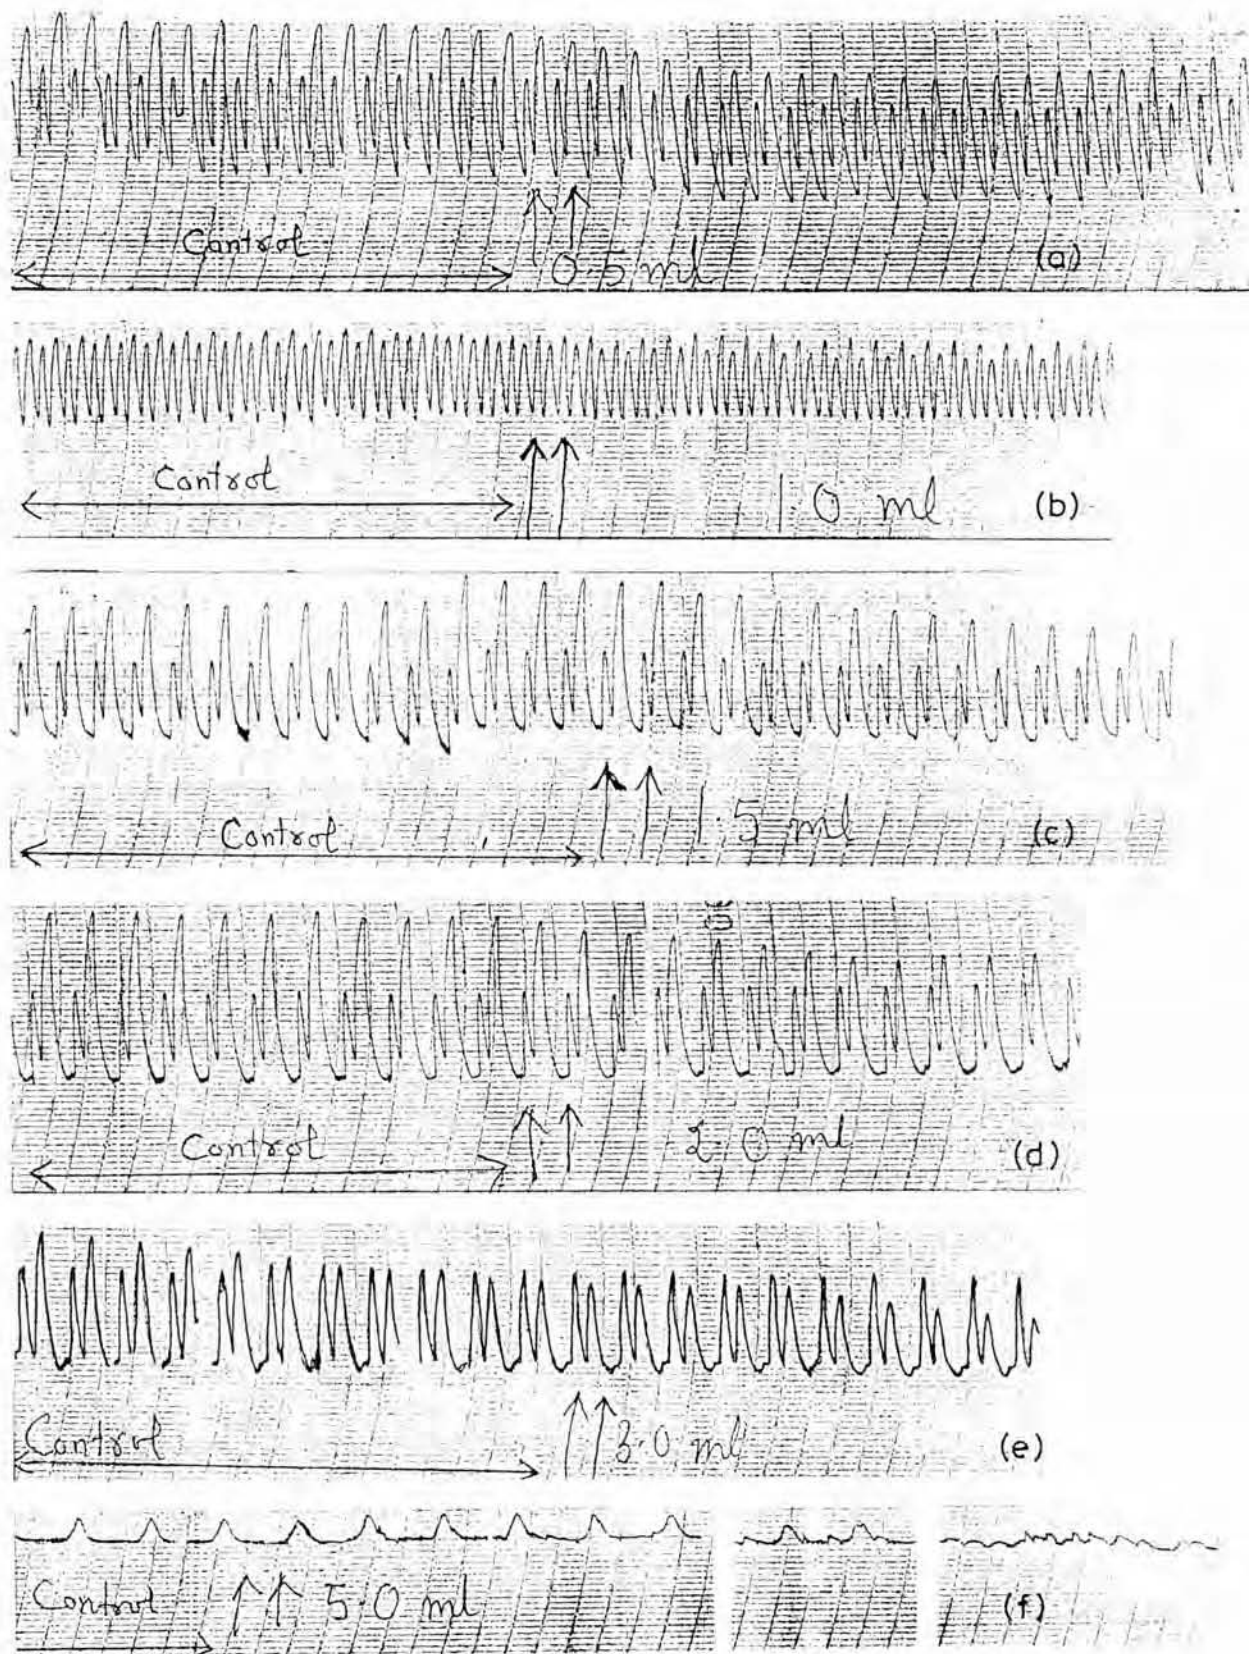 Control
0.5 ml
(a)
Control
1.0 ml
(b)
Control
1.5 ml
(c)
Control
2.0 ml
(d)
Control
3.0 ml
(e)
Control
5.0 ml
(f)